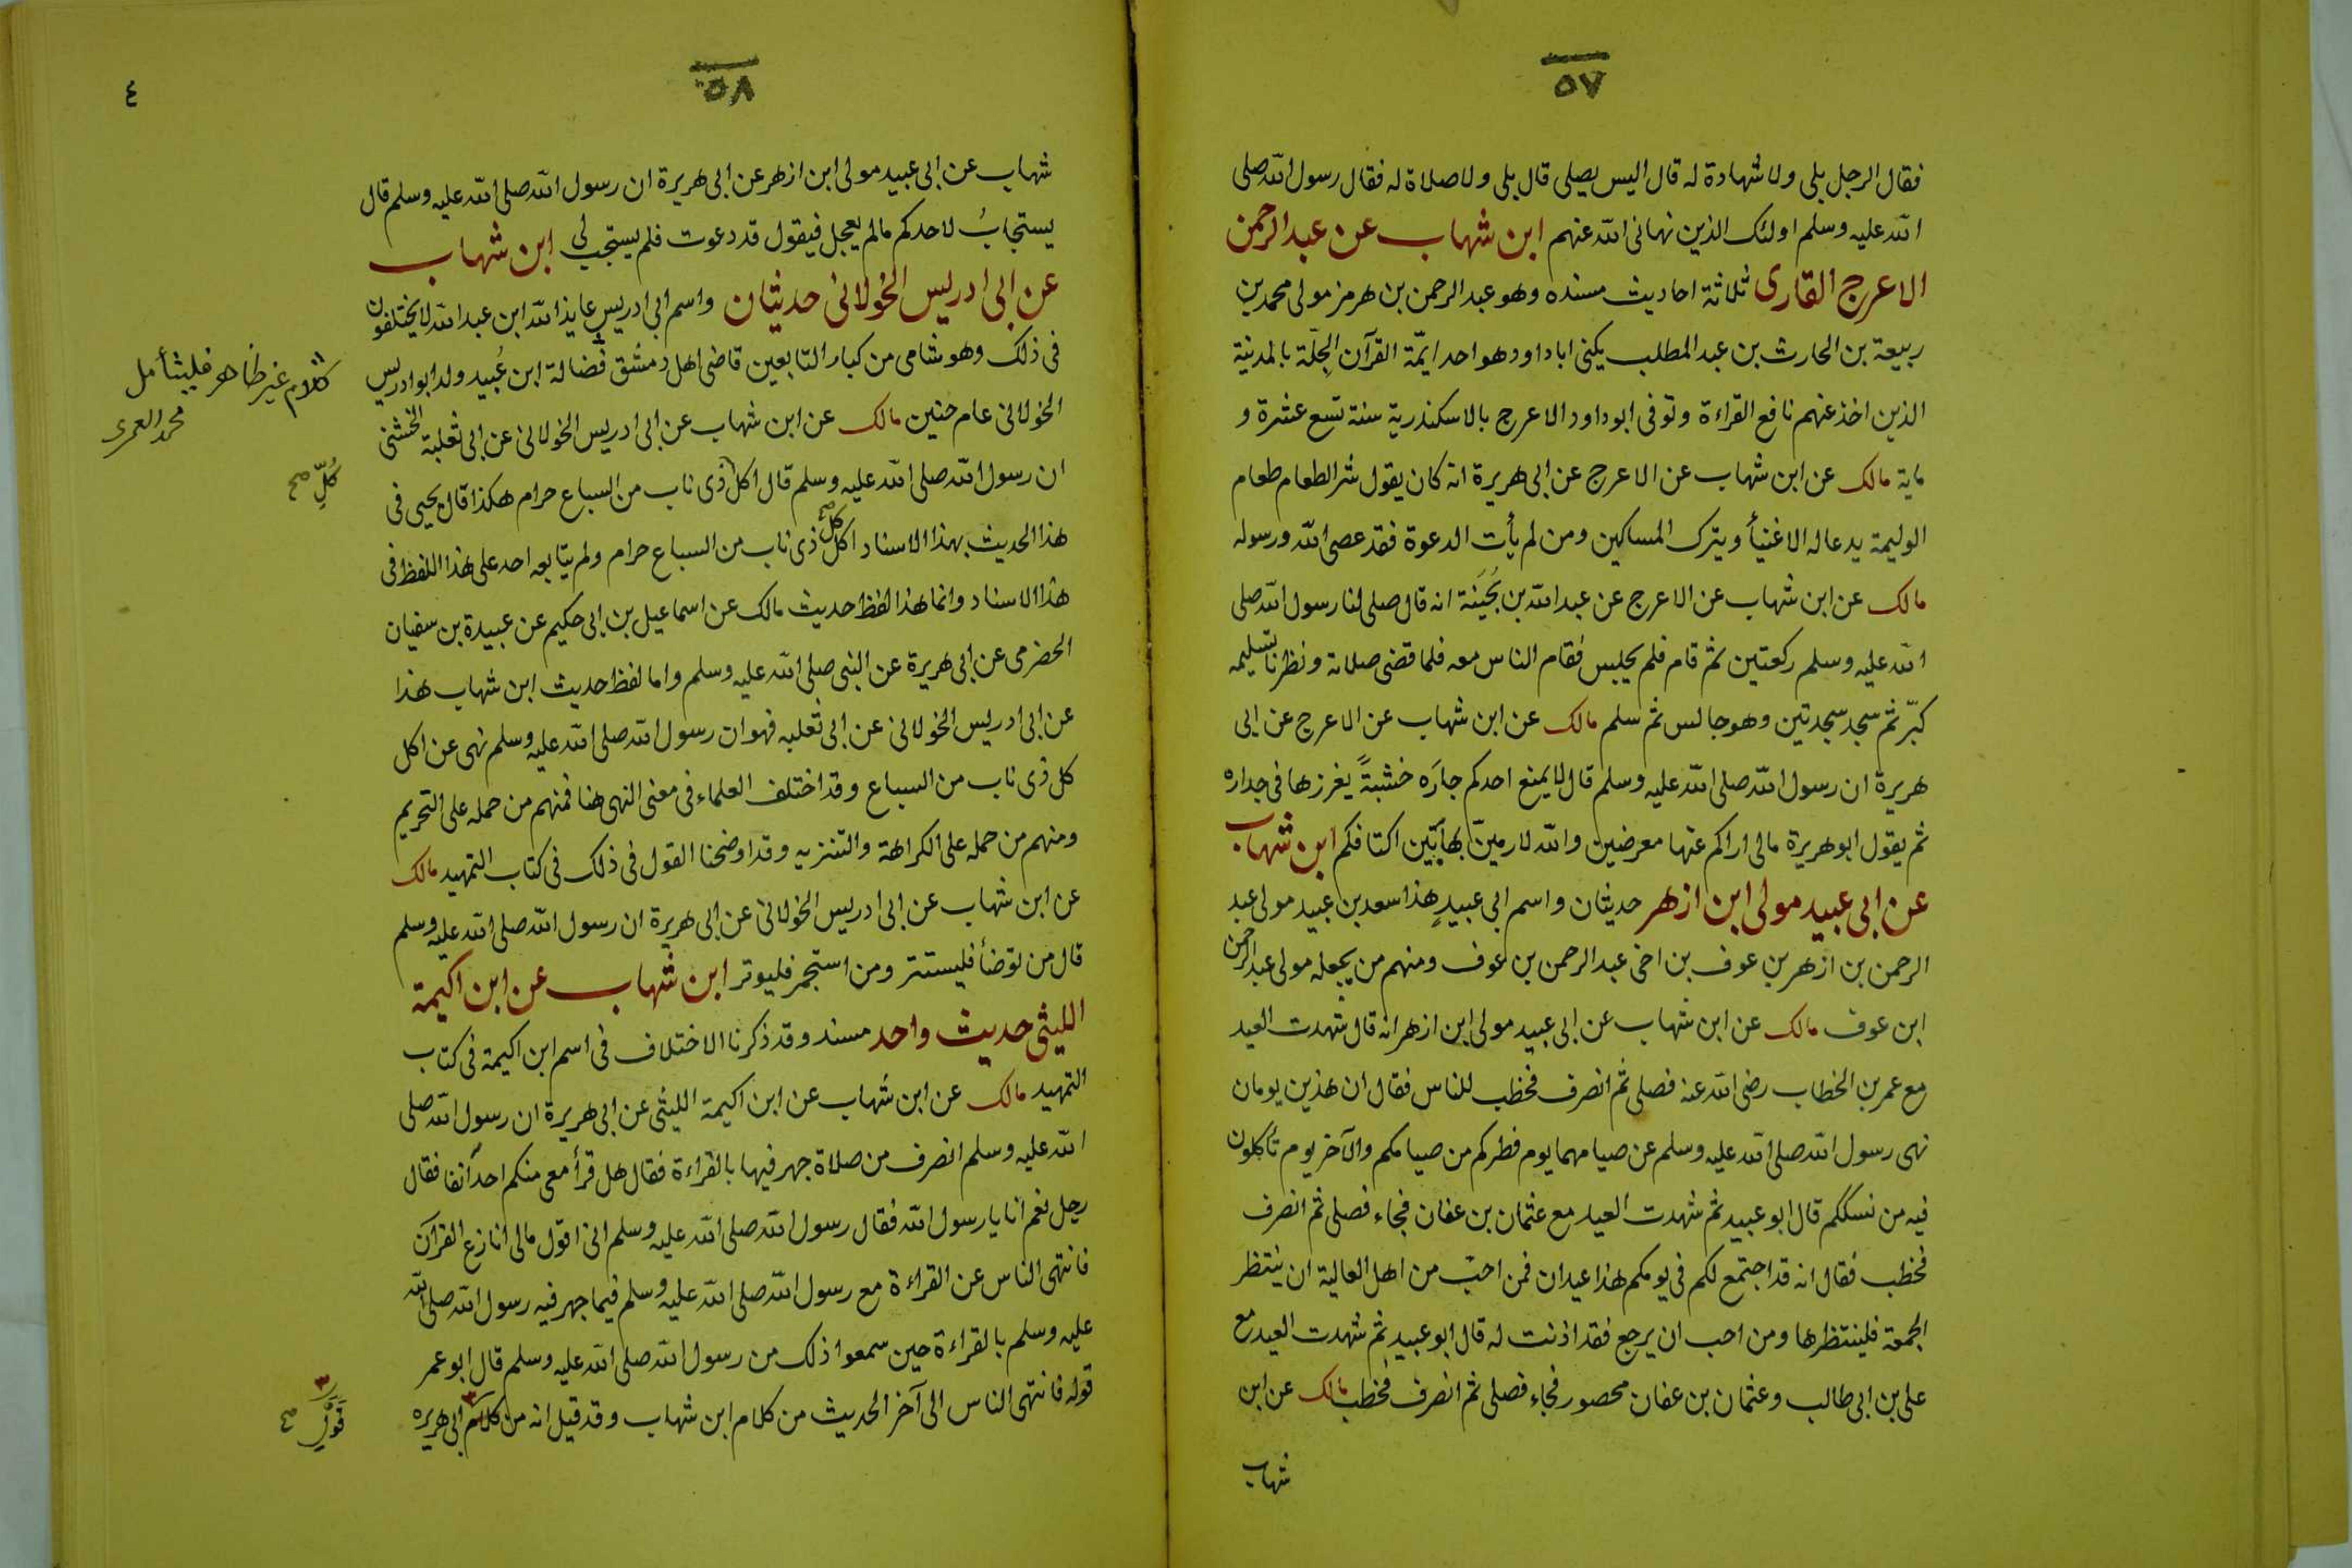 ٥٧
فقال الرجل بلى ولا شهادة له قال اليس يصلى قال بلى ولا صلاة له فقال رسول الله صلى
الله عليه وسلم اولئك الذين نهانى الله عنهم ابن شهاب عن عبد الرحمن
الاعرج القارى ثلاثة احاديث مسنده وهو عبد الرحمن بن هرمز مولى محمد بن
ربيعة بن الحارث بن عبد المطلب يكنى ابا داود وهو احد ايمّة القرآن الجِلّة بالمدينة
الذين اخذ عنهم نافع القراءة وتوفى ابو داود الاعرج بالاسكندرية سنة تسع عشرة و
ماية مالك عن ابن شهاب عن الاعرج عن ابى هريرة انه كان يقول شر الطعام طعام
الوليمة يدعا له الاغنيأ ويترك المساكين ومن لم يأت الدعوة فقد عصى الله ورسوله
مالك عن ابن شهاب عن الاعرج عن عبد الله بن بُحَينة انه قال صلى لنا رسول الله صلى
الله عليه وسلم ركعتين ثم قام فلم يجلس فقام الناس معه فلما قضى صلاته ونظرنا تسليمه
كبّر ثم سجد سجدتين وهو جالس ثم سلم مالك عن ابن شهاب عن الاعرج عن ابى
هريرة ان رسول الله صلى الله عليه وسلم قال لا يمنع احدكم جارَه خشبةً يغرزها فى جداره
ثم يقول ابو هريرة مالى اراكم عنها معرضين والله لارمينّ بها بَيْن اكتافكم ابن شهاب
عن ابى عبيد مولى ابن ازهر حديثان واسم ابى عبيدٍ هذا سعد بن عبيد مولى عبد
الرحمن بن ازهر بن عوف بن اخى عبد الرحمن بن عوف ومنهم من يجعله مولى عبد الرحمن
ابن عوف مالك عن ابن شهاب عن ابى عبيد مولى ابن ازهر انه قال شهدت العيد
مع عمر بن الخطاب رضى الله عنه فصلى ثم انصرف فخطب للناس فقال ان هذين يومان
نهى رسول الله صلى الله عليه وسلم عن صيامهما يوم فطركم من صيامكم والآخر يوم تأكلون
فيه من نسككم قال ابو عبيد ثم شهدت العيد مع عثمان بن عفان فجاء فصلى ثم انصرف
فخطب فقال انه قد اجتمع لكم فى يومكم هذا عيدان فمن احبّ من اهل العالية ان ينتظر
الجمعة فلينتظرها ومن احب ان يرجع فقد اذنت له قال ابو عبيد ثم شهدت العيد مع
على بن ابى طالب وعثمان بن عفان محصور فجاء فصلى ثم انصرف فخطب مالك عن ابن
شهاب
٥٨
٤
شهاب عن ابى عبيد مولى ابن ازهر عن ابى هريرة ان رسول الله صلى الله عليه وسلم قال
يستجابُ لاحدكم مالم يعجل فيقول قد دعوت فلم يستجب لى ابن شهاب
عن ابى ادريس الخولانى حديثان واسم ابى ادريس عايذ الله ابن عبد الله لا يختلفون
فى ذلك وهو شامى من كبار التابعين قاضى اهل دمشق فضالة ابن عُبيد ولد ابو ادريس
الخولانى عام حنين مالك عن ابن شهاب عن ابى ادريس الخولانى عن ابى ثعلبة الخشنى
ان رسول الله صلى الله عليه وسلم قال اكل ذى ناب من السباع حرام هكذا قال يحيى فى
هذا الحديث بهذا الاسناد اكل كل صح ذى ناب من السباع حرام ولم يتابعه احد على هذا اللفظ فى
هذا الاسناد وانما هذا لفظ حديث مالك عن اسماعيل بن ابى حكيم عن عبيدة بن سفيان
الحضرمى عن ابى هريرة عن النبى صلى الله عليه وسلم واما لفظ حديث ابن شهاب هذا
عن ابى ادريس الخولانى عن ابى ثعلبه فهو ان رسول الله صلى الله عليه وسلم نهى عن اكل
كل ذى ناب من السباع وقد اختلف العلماء فى معنى النهى هنا فمنهم من حمله على التحريم
ومنهم من حمله على الكراهة والتنزيه وقد اوضحنا القول فى ذلك فى كتاب التمهيد مالك
عن ابن شهاب عن ابى ادريس الخولانى عن ابى هريرة ان رسول الله صلى الله عليه وسلم
قال من توضأ فليستنتر ومن استجمر فليوتر ابن شهاب عن ابن اكيمة
الليثى حديث واحد مسند وقد ذكرنا الاختلاف فى اسم ابن اكيمة فى كتاب
التمهيد مالك عن ابن شهاب عن ابن اكيمة الليثى عن ابى هريرة ان رسول الله صلى
الله عليه وسلم انصرف من صلاة جهر فيها بالقراءة فقال هل قرأ معى منكم احد آنفا فقال
رجل نعم انا يا رسول الله فقال رسول الله صلى الله عليه وسلم انى اقول مالى انازع القرآن
فانتهى الناس عن القراءة مع رسول الله صلى الله عليه وسلم فيما جهر فيه رسول الله صلى الله
عليه وسلم بالقراءة حين سمعوا ذلك من رسول الله صلى الله عليه وسلم قال ابو عمر
قوله فانتهى الناس الى آخر الحديث من كلام ابن شهاب وقد قيل انه من كلام ٣ ابى هريره
كلام غير ظاهر فليتأمل
محمد العمرى
كُلِّ صح
٣
قَوْلِ صح